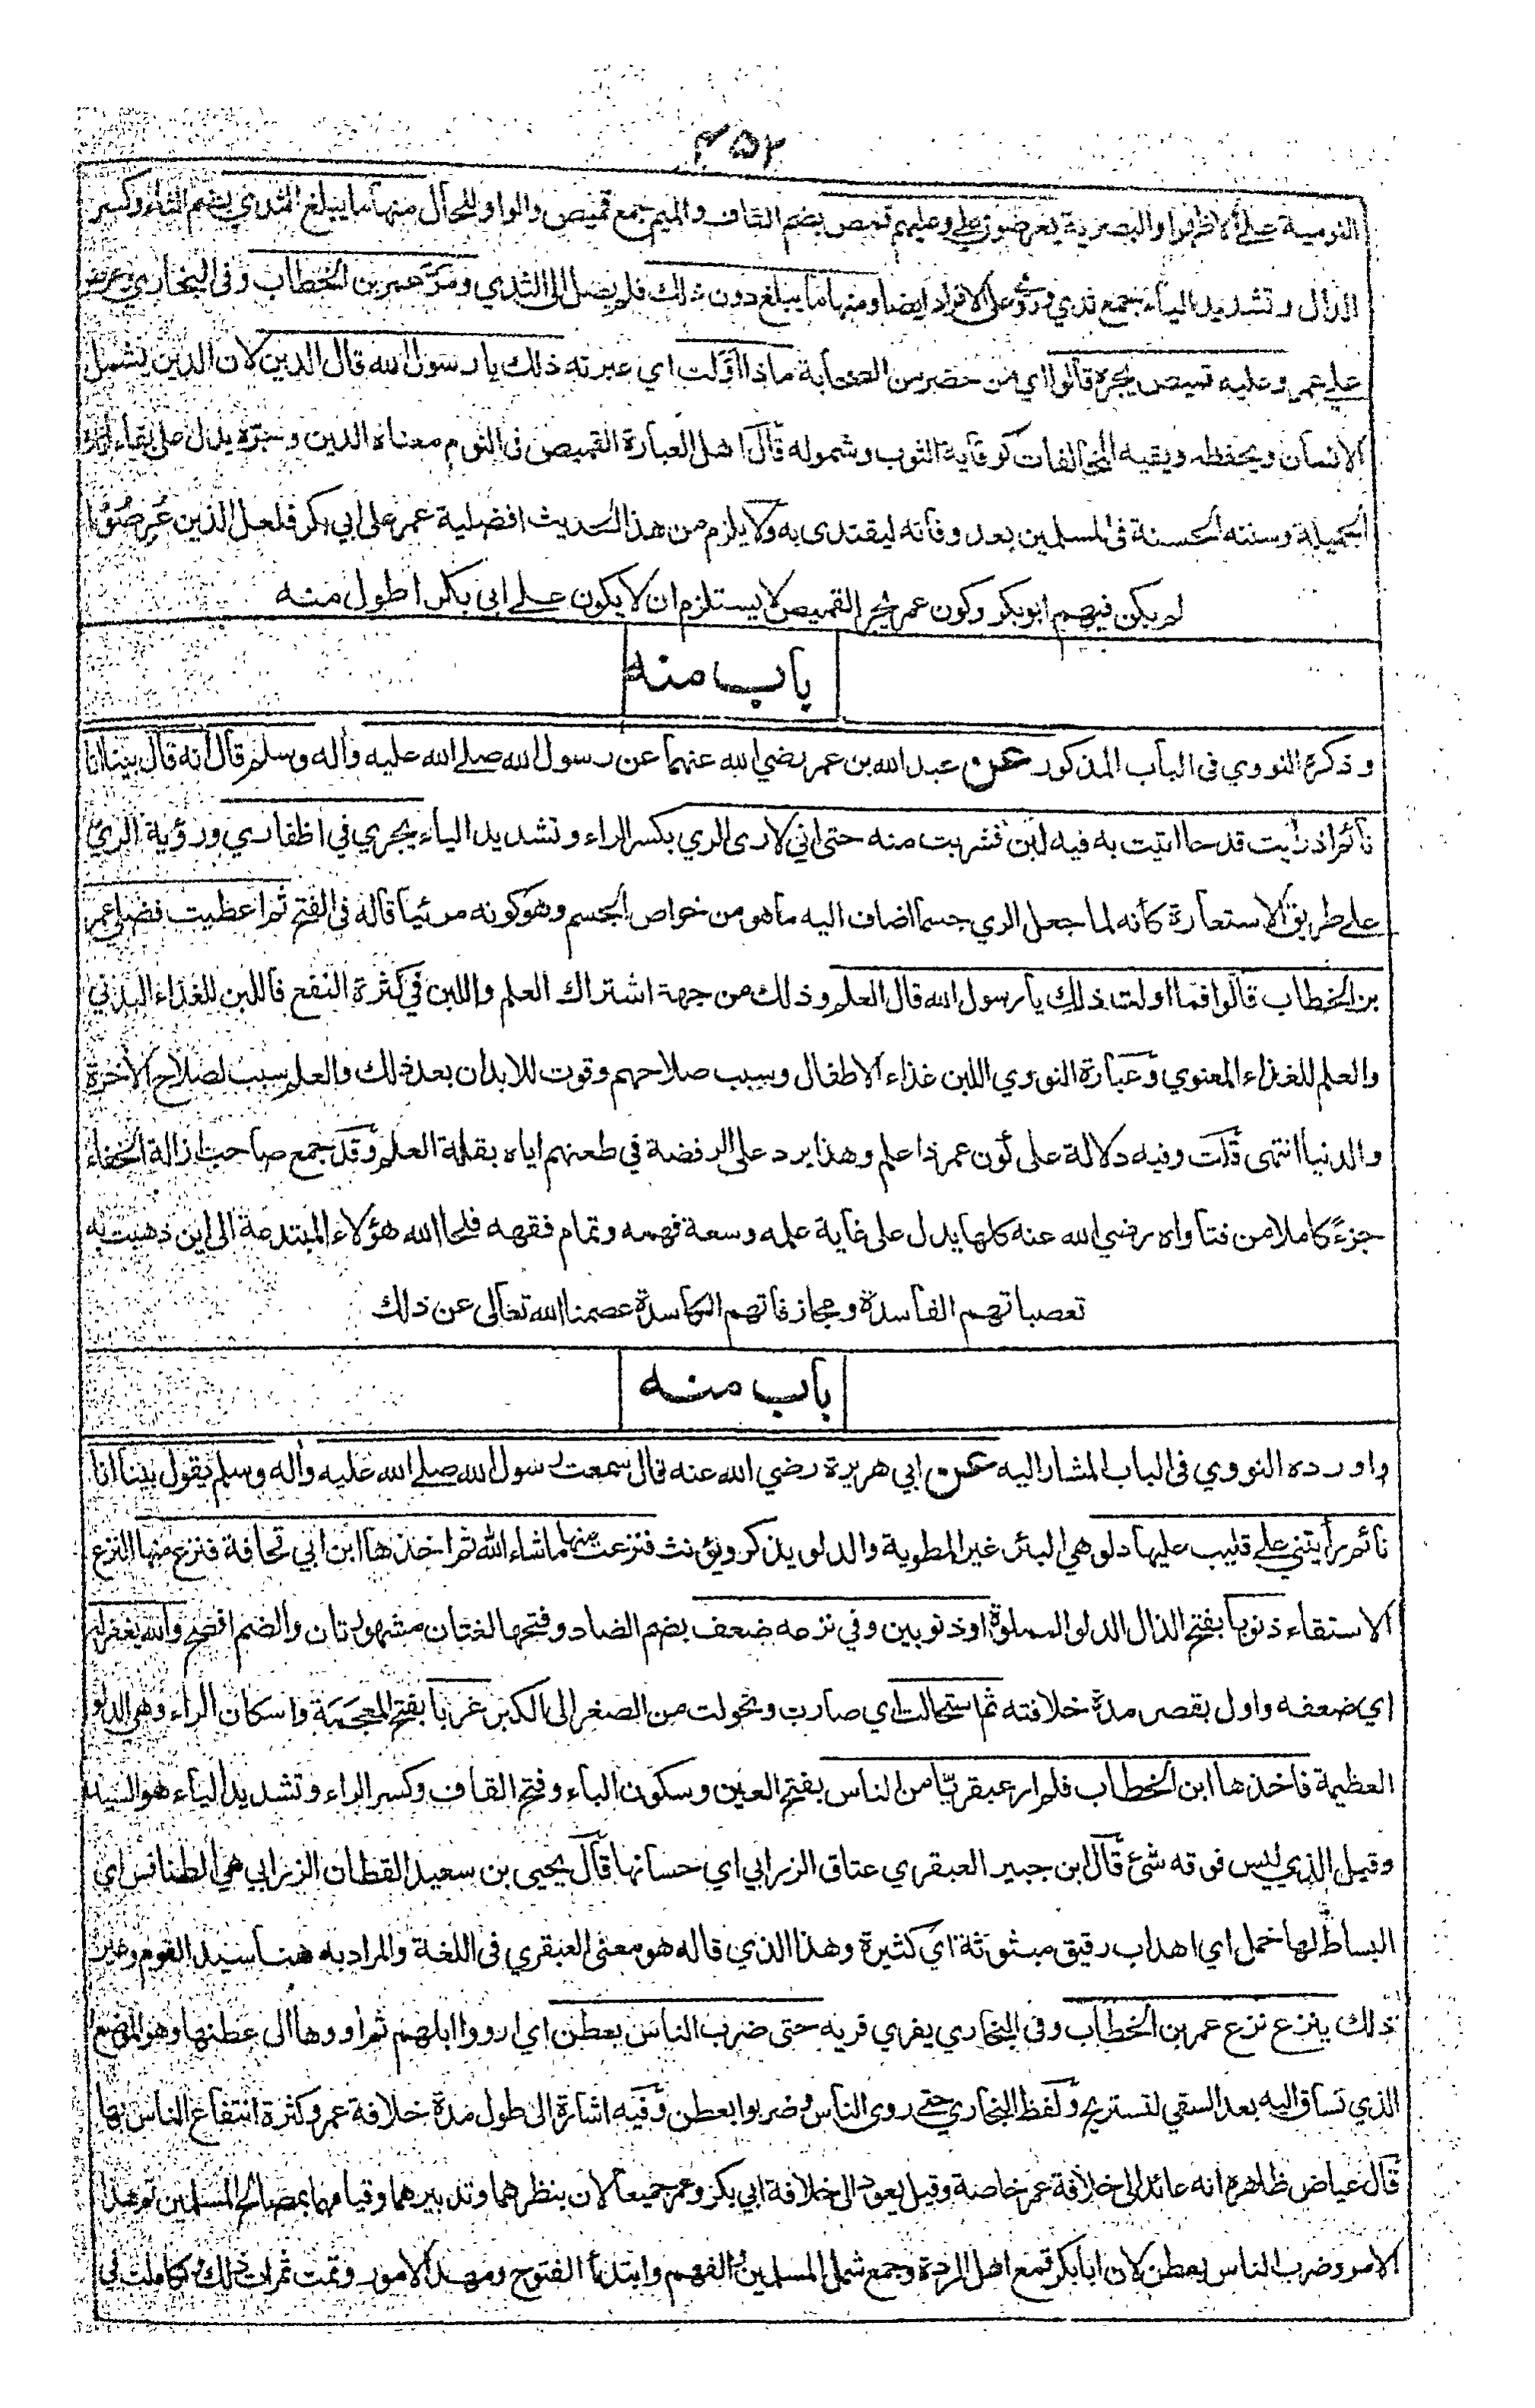 ٤٥٢
النومية على الاظهر او البصرية يعرضون علي وعليهم قمص بضم القاف والميم جمع قميص والواو للحال منها ما يبلغ الثدي بضم الثاء وكسر
الدال وتشديد الياء جمع ثدي وروي على الافراد ايضا ومنها ما يبلغ دون ذلك فلم يصل الى الثدي ومر عمر بن الخطاب وفى البخاري عرض
علي عمر وعليه قميص يجره قالوا اي من حضر من الصحابة ماذا اولت اي عبرته ذلك يا رسول الله قال الدين لان الدين يشمل
الانسان ويحفظه ويقيه المخالفات كوقاية الثوب وشموله قال اهل العبارة القميص فى النوم معناه الدين وجره يدل على بقاء اثاره
الجميلة وسنته الحسنة فى المسلمين بعد وفاته ليقتدى به ولا يلزم من هذا الحديث افضلية عمر على ابي بكر فلعل الذين عرضوا
لم يكن فيهم ابو بكر وكون عمر يجر القميص لا يستلزم ان لا يكون على ابى بكر اطول منه
باب منه
وذكره النووي فى الباب المذكور عن عبد الله بن عمر رضي الله عنهما عن رسول الله صلى الله عليه وأله وسلم قال انه قال بينا انا
نائم اذ رأيت قدحا اتيت به فيه لبن فشربت منه حتى اني لارى الري بكسر الراء وتشديد الياء يجري في اظفاري ورؤية الري
على طريق الاستعارة كأنه لما جعل الري جسما اضاف اليه ما هو من خواص الجسم وهو كونه مرئيا قاله فى الفتح ثم اعطيت فضلي عمر
بن الخطاب قالوا فما اولت ذلك يا رسول الله قال العلم وذلك من جهة اشتراك العلم واللبن في كثرة النفع فاللبن للغذاء البدني
والعلم للغذاء المعنوي وعبارة النووي اللبن غذاء الاطفال وسبب صلاحهم وقوت للابدان بعد ذلك والعلم سبب لصلاح الأخرة
والدنيا انتهى قلت وفيه دلالة على كون عمر ذا علم وهذا يرد على الرفضة في طعنهم اياه بقلة العلم وقد جمع صاحب ازالة الخفاء
جزءً كاملا من فتاواه رضي الله عنه كلها يدل على غاية علمه وسعة فهمه وتمام فقهه فلحا الله هؤلاء المبتدعة الى اين ذهبت به
تعصباتهم الفاسدة ومجازفاتهم الكاسدة عصمنا الله تعالى عن ذلك
باب منه
واورده النووي فى الباب المشار اليه عن ابي هريرة رضي الله عنه قال سمعت رسول الله صلى الله عليه وأله وسلم يقول بينا انا
نائم رأيتني على قليب عليها دلو هي البئر غير المطوية والدلو يذكر ويؤنث فنزعت منها ما شاء الله ثم اخذها ابن ابي قحافة فنزع منها النزع
الاستقاء ذنوبا بفتح الذال الدلو المملوة او ذنوبين وفي نزعه ضعف بضم الضاد وفتحها لغتان مشهورتان والضم افصح والله يغفر له
اي ضعفه واول بقصر مدة خلافته ثم استحالت اي صارت وتحولت من الصغر الى الكبر غربا بفتح المعجمة واسكان الراء وهي الدلو
العظيمة فاخذها ابن الخطاب فلم ار عبقريّا من الناس بفتح العين وسكون الباء وفتح القاف وكسر الراء وتشديد الياء هو السيد
وقيل الذي ليس فوقه شئ قال ابن جبير العبقري عتاق الزرابي اي حسانها قال يحيى بن سعيد القطان الزرابي هي الطنافس اي
البساط لها خمل اي اهداب رقيق مبثوثة اي كثيرة وهذا الذي قاله هو معنى العبقري فى اللغة والمراد به هنا سيد القوم وغير
ذلك ينزع نزع عمر بن الخطاب وفى البخاري يفري فريه حتى ضرب الناس بعطن اي ارووا ابلهم ثم اووها الى عطنها وهو الموضع
الذي تساق اليه بعد السقي لتستريح ولفظ البخاري حتى روى الناس وضربوا بعطن وفيه اشارة الى طول مدة خلافة عمر وكثرة انتفاع الناس بها
قال عياض ظاهره انه عائد الى خلافة عمر خاصة وقيل يعود الى خلافة ابي بكر وعمر جميعا لان بنظرهما وتدبيرهما وقيامهما بمصالح المسلمين تم هذا
الامر وضرب الناس بعطن لان ابا بكر قمع اهل الردة وجمع شمل المسلمين والفهم وابتدأ الفتوح ومهد الامور وتمت ثمرات ذلك وتكاملت في